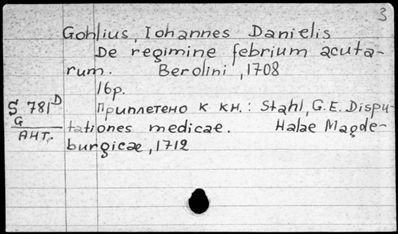 3
Gohlius, Iohannes Danielis
De regimine febrium acuta-
rum. Berolini, 1708
16p.
S 781D Приплетено к кн.: Stahl, G.E. Dispu-
G
АНТ. tationes medicae. Halae Magde-
burgicae, 1712